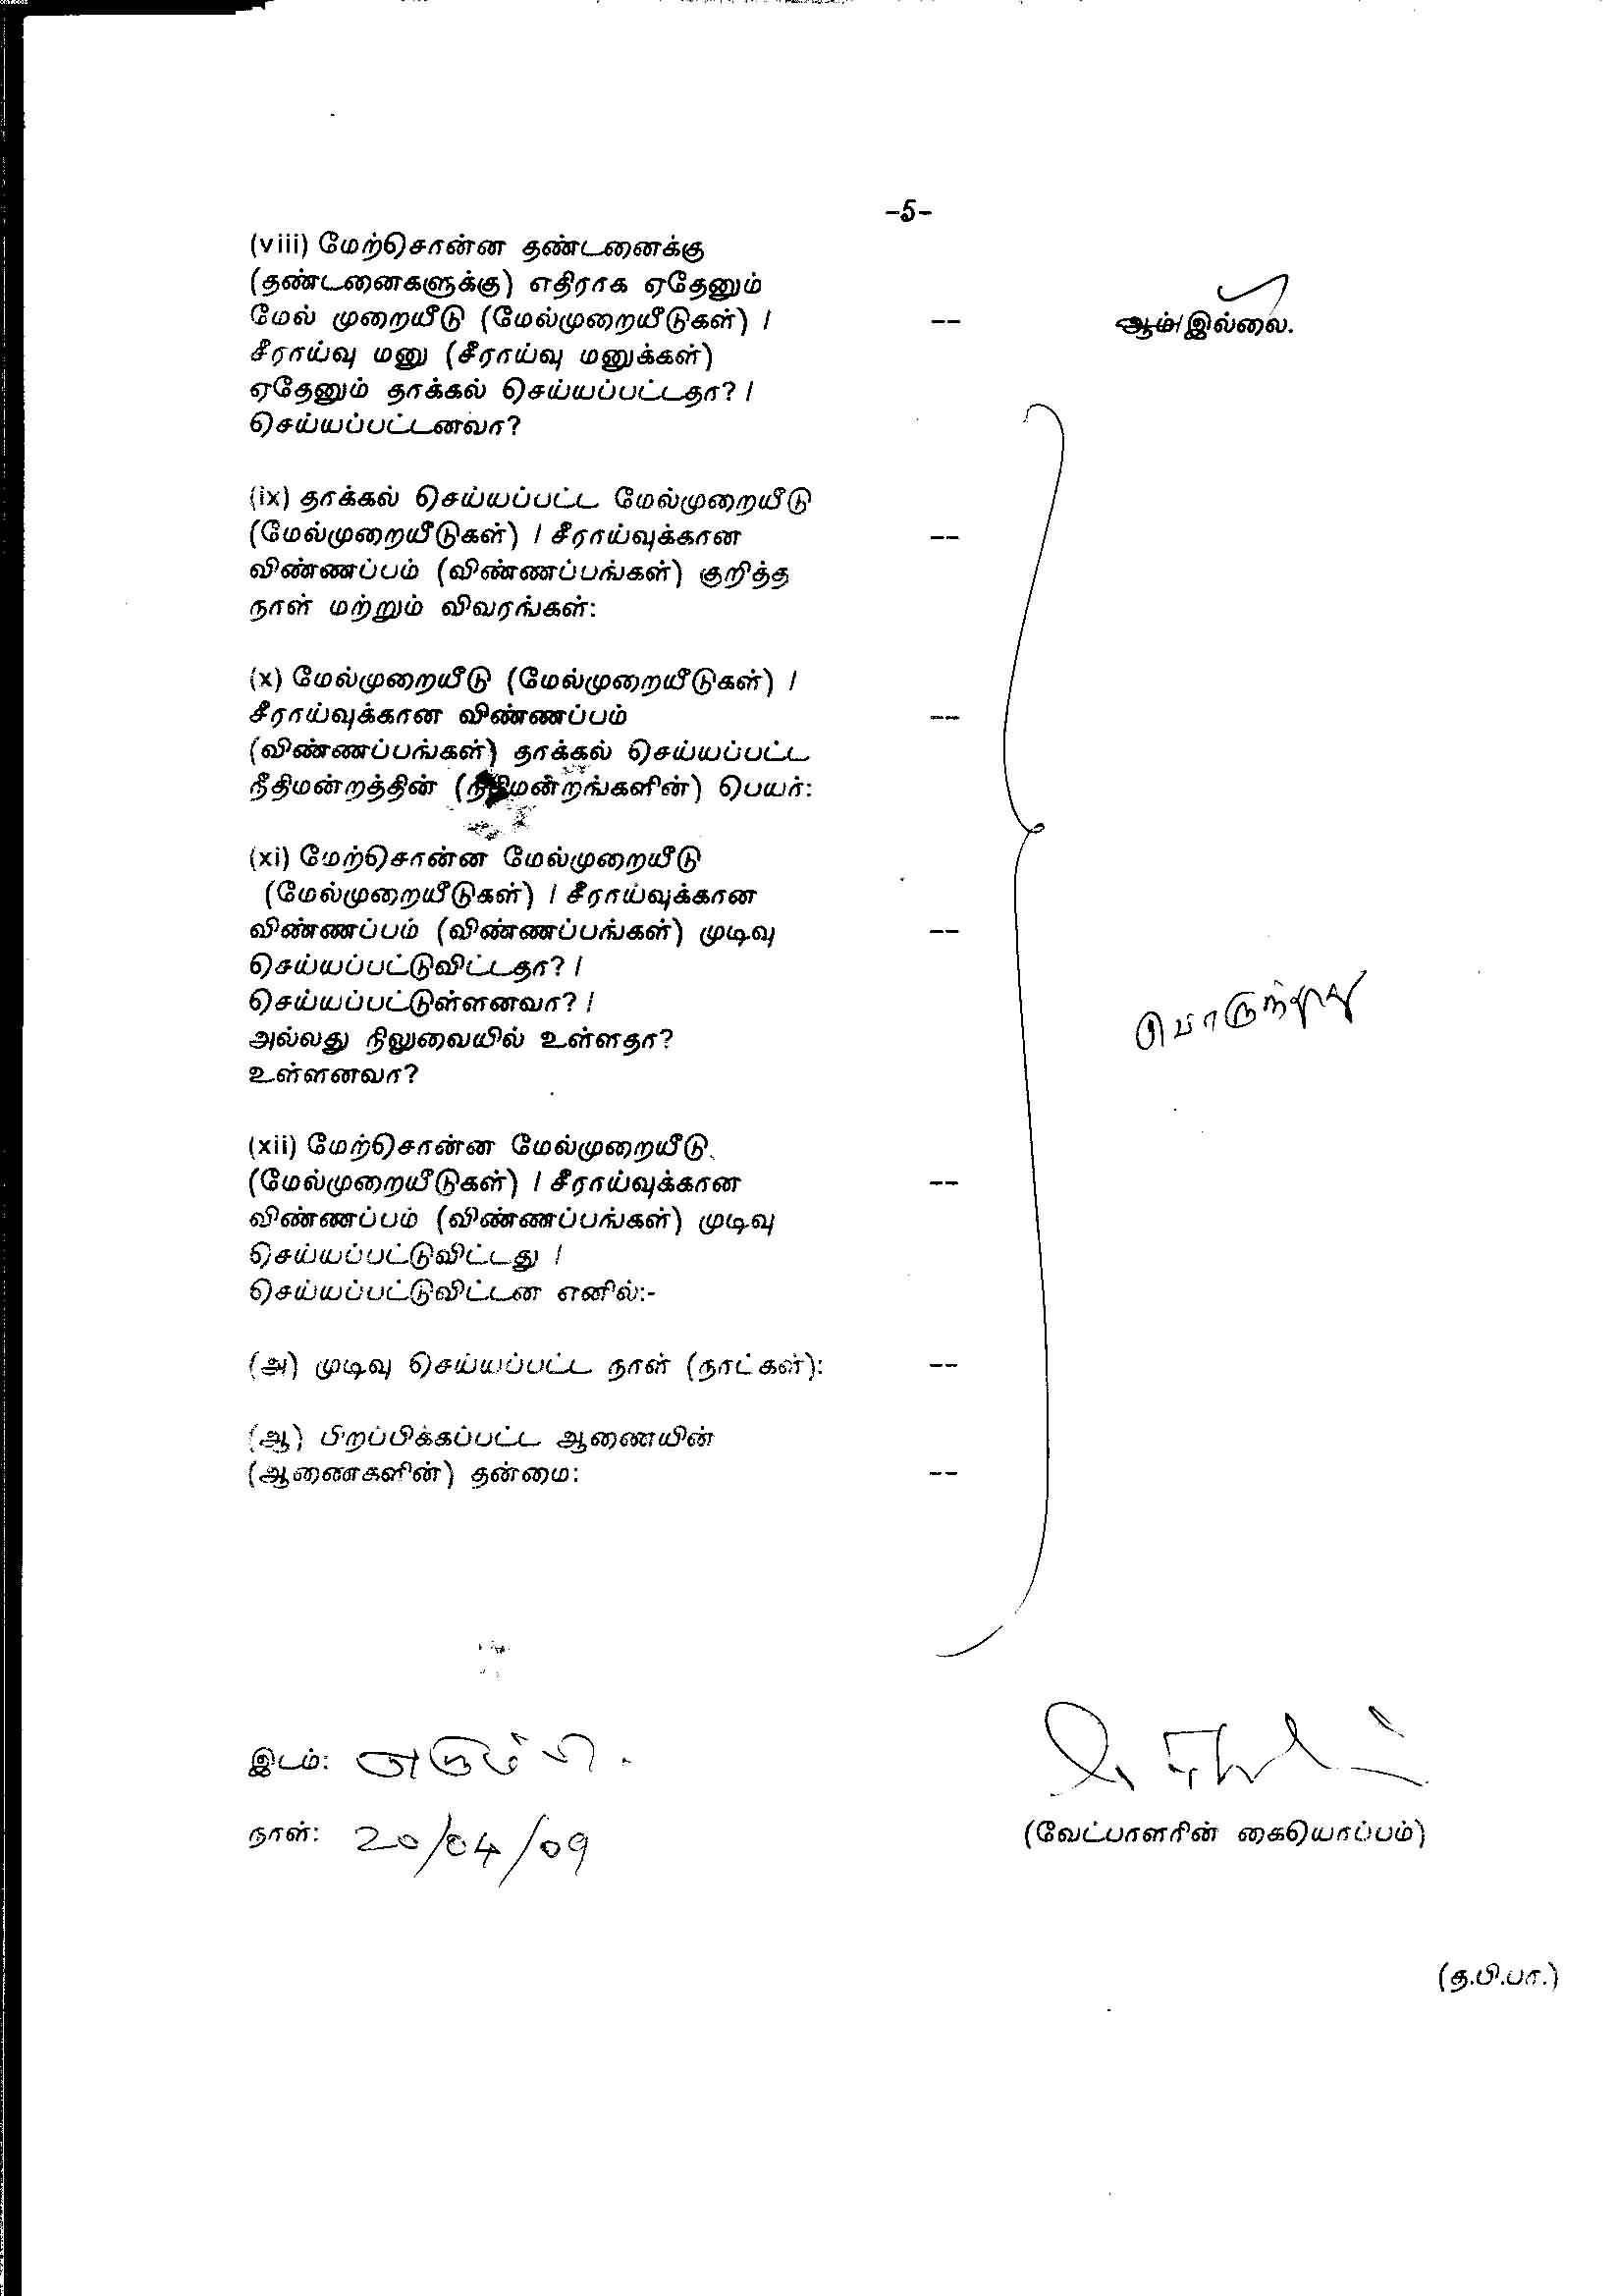 -5-
(viii) மேற்சொன்ன தண்டனைக்கு
(தண்டனைகளுக்கு) எதிராக ஏதேனும்
மேல் முறையீடு (மேல்முறையீடுகள்) / -- ஆம்/இல்லை.
சீராய்வு மனு (சீராய்வு மனுக்கள்)
ஏதேனும் தாக்கல் செய்யப்பட்டதா? /
செய்யப்பட்டனவா?
(ix) தாக்கல் செய்யப்பட்ட மேல்முறையீடு
(மேல்முறையீடுகள்) / சீராய்வுக்கான --
விண்ணப்பம் (விண்ணப்பங்கள்) குறித்த
நாள் மற்றும் விவரங்கள்:
(x) மேல்முறையீடு (மேல்முறையீடுகள்) /
சீராய்வுக்கான விண்ணப்பம் --
(விண்ணப்பங்கள்) தாக்கல் செய்யப்பட்ட
நீதிமன்றத்தின் (நீதிமன்றங்களின்) பெயர்:
(xi) மேற்சொன்ன மேல்முறையீடு
(மேல்முறையீடுகள்) / சீராய்வுக்கான
விண்ணப்பம் (விண்ணப்பங்கள்) முடிவு --
செய்யப்பட்டுவிட்டதா? /
செய்யப்பட்டுள்ளனவா? /
அல்லது நிலுவையில் உள்ளதா?
உள்ளனவா?
(xii) மேற்சொன்ன மேல்முறையீடு
(மேல்முறையீடுகள்) / சீராய்வுக்கான --
விண்ணப்பம் (விண்ணப்பங்கள்) முடிவு
செய்யப்பட்டுவிட்டது /
செய்யப்பட்டுவிட்டன எனில்:-
(அ) முடிவு செய்யப்பட்ட நாள் (நாட்கள்): --
(ஆ) பிறப்பிக்கப்பட்ட ஆணையின்
(ஆணைகளின்) தன்மை: --
இடம்:
நாள்: 20/04/09
(வேட்பாளரின் கையொப்பம்)
(த.பி.பா.)